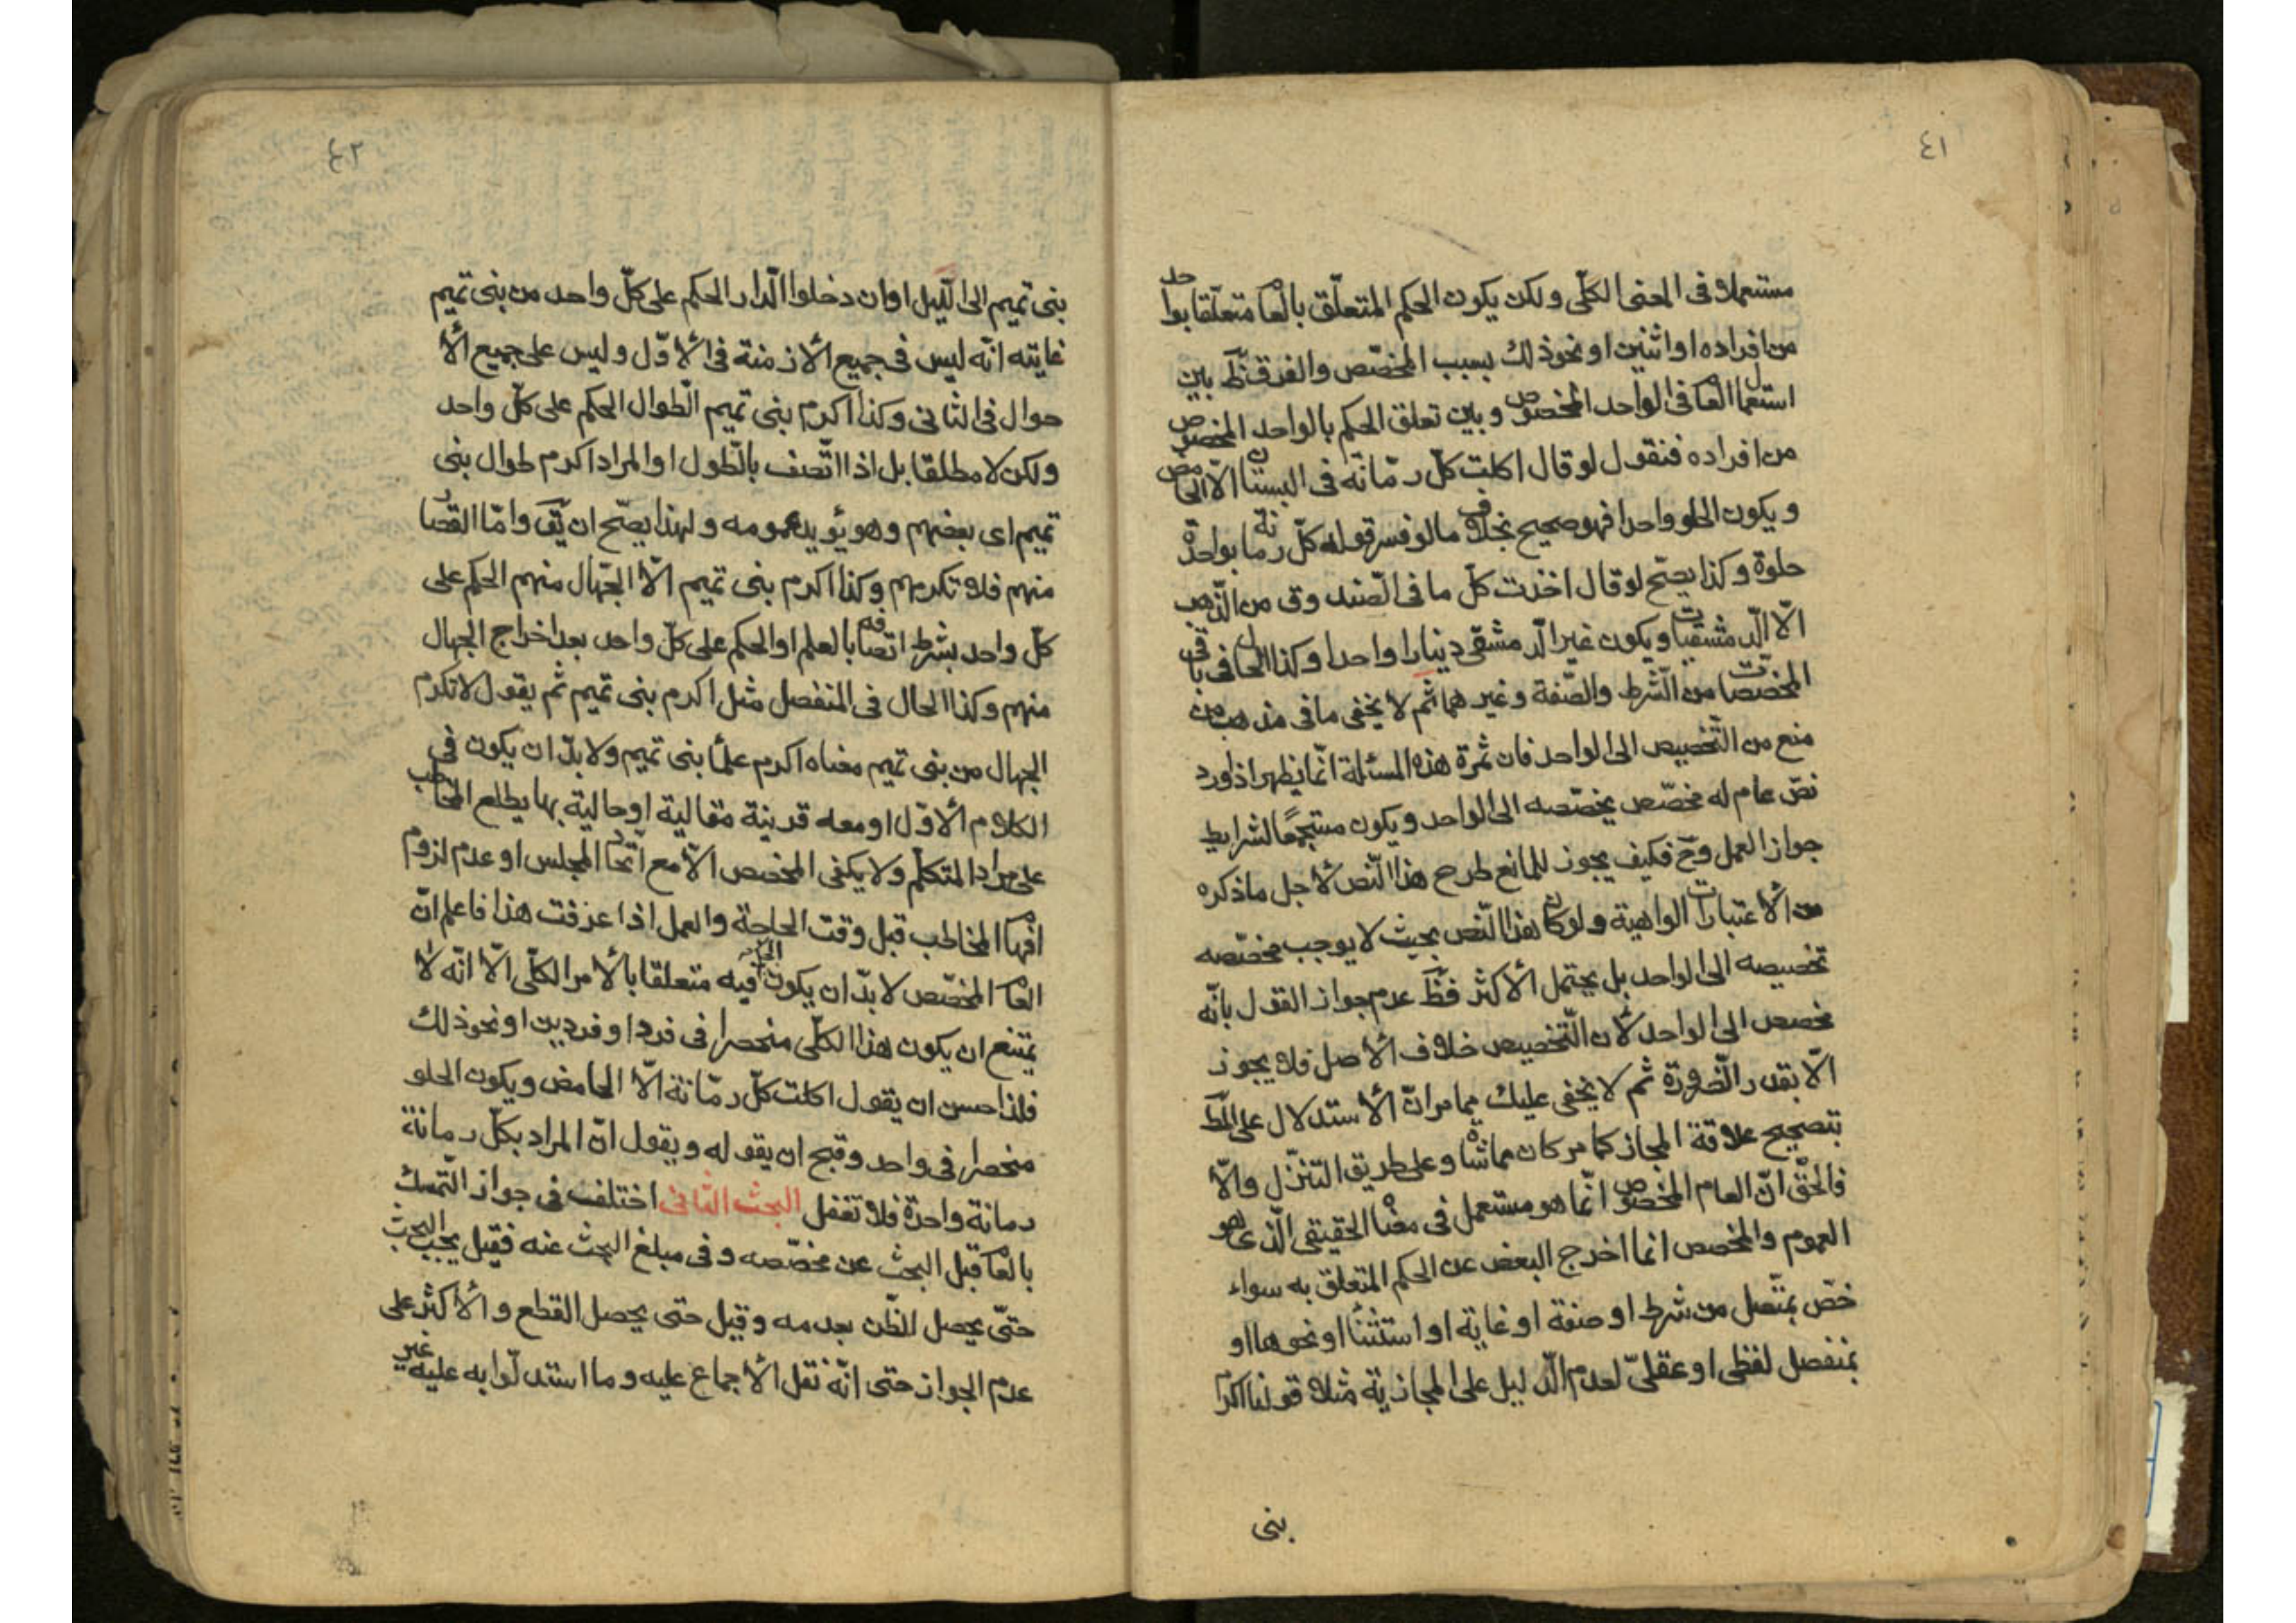 ٤١
مستعملا فى المعنى الكلّى ولكن يكون الحكم المتعلّق بالعا متعلّقا بواحد
من افراده او اثنين او نحو ذلك بسبب المخصّص والفرق ظ بين
استعمال العا فى الواحد المخصوص وبين تعلق الحكم بالواحد المخصوص
من افراده فنقول لو قال اكلت كلّ رمّانة فى البستان الّا الحامض
ويكون الحلو واحدا فهو صحيح بخلاف ما لو فسر قوله كلّ رمانة بواحدة
حلوة وكذا يصحّ لو قال اخذت كلّ ما فى الصّندوق من الذّهب
الّا الدّمشقيات ويكون غير الدّمشقى دينارا واحدا وكذا الحال فى باقى
المخصّصات من الشّرط والصّفة وغيرهما ثم لا يخفى ما فى مذهب من
منع من التّخصيص الى الواحد فان ثمرة هذه المسئلة انّما يظهر اذا ورد
نصّ عام له مخصّص يخصّصه الى الواحد ويكون مستجمعًا لشرايط
جواز العمل وح فكيف يجوز للمانع طرح هذا النّص لأجل ما ذكره
من الأعتبارات الواهية ولو كان هذا النّص بحيث لا يوجب مخصّصه
تخصيصه الى الواحد بل يحتمل الأكثر فظ عدم جواز القول بانّه
مخصص الى الواحد لأن التّخصيص خلاف الأصل فلا يجوز
الّا بقدر الضّرورة ثم لا يخفى عليك مما مر انّ الأستدلال على المط
بتصحيح علاقة المجاز كما مر كان مماشاة وعلى طريق التنزّل والّا
فالحقّ انّ العام المخصوص انّما هو مستعمل فى معناه الحقيقى الّذى هو
العموم والمخصص انما اخرج البعض عن الحكم المتعلق به سواء
خصّ بمتّصل من شرط او صفة او غاية او استثنأ او نحوها او
بمنفصل لفظى او عقلىّ لعدم الدّليل على المجازية مثلا قولنا اكرم
بنى
٤٢
بنى تميم الى اللّيل او ان دخلوا الدّار الحكم على كلّ واحد من بنى تميم
غايته انّه ليس فى جميع الأزمنة فى الأوّل وليس على جميع الأ
حوال فى الثانى وكذا اكرم بنى تميم الطّوال الحكم على كلّ واحد
ولكن لا مطلقا بل اذا اتّصف بالطّول او المراد اكرم طوال بنى
تميم اى بعضهم وهو يؤيد عمومه ولهذا يصّح ان يّق وامّا القصار
منهم فلا تكرمهم وكذا اكرم بنى تميم الّا الجّهال منهم الحكم على
كلّ واحد بشرط اتصافه بالعلم او الحكم على كلّ واحد بعد اخراج الجهال
منهم وكذا الحال فى المنفصل مثل اكرم بنى تميم ثم يقول لا تكرم
الجهال من بنى تميم معناه اكرم علمأ بنى تميم ولا بدّ ان يكون فى
الكلام الأوّل او معه قرينة مقالية او حالية بها يطلع المخاطب
على مراد المتكلّم ولا يكفى المخصص الّا مع اتّحاد المجلس او عدم لزوم
افهام المخاطب قبل وقت الحاجة والعمل اذا عرفت هذا فاعلم انّ
العا المخصّص لا بدّ ان يكون الحكم فيه متعلقا بالأمر الكلّى الّا انّه لا
يمتنع ان يكون هذا الكلّى منحصرا فى فرد او فردين او نحو ذلك
فلذا حسن ان يقول اكلت كلّ رمّانة الّا الحامض ويكون الحلو
منحصرا فى واحد وقبح ان يقوله ويقول انّ المراد بكلّ رمانة
رمانة واحدة فلا تغفل البحث الثانى اختلف فى جواز التّمسك
بالعا قبل البحث عن مخصّصه وفى مبلغ البحث عنه فقيل يجب البحث
حتّى يحصل الظّن بعدمه وقيل حتى يحصل القطع والأكثر على
عدم الجواز حتى انّه نقل الأجماع عليه وما استدلّوا به عليه غير